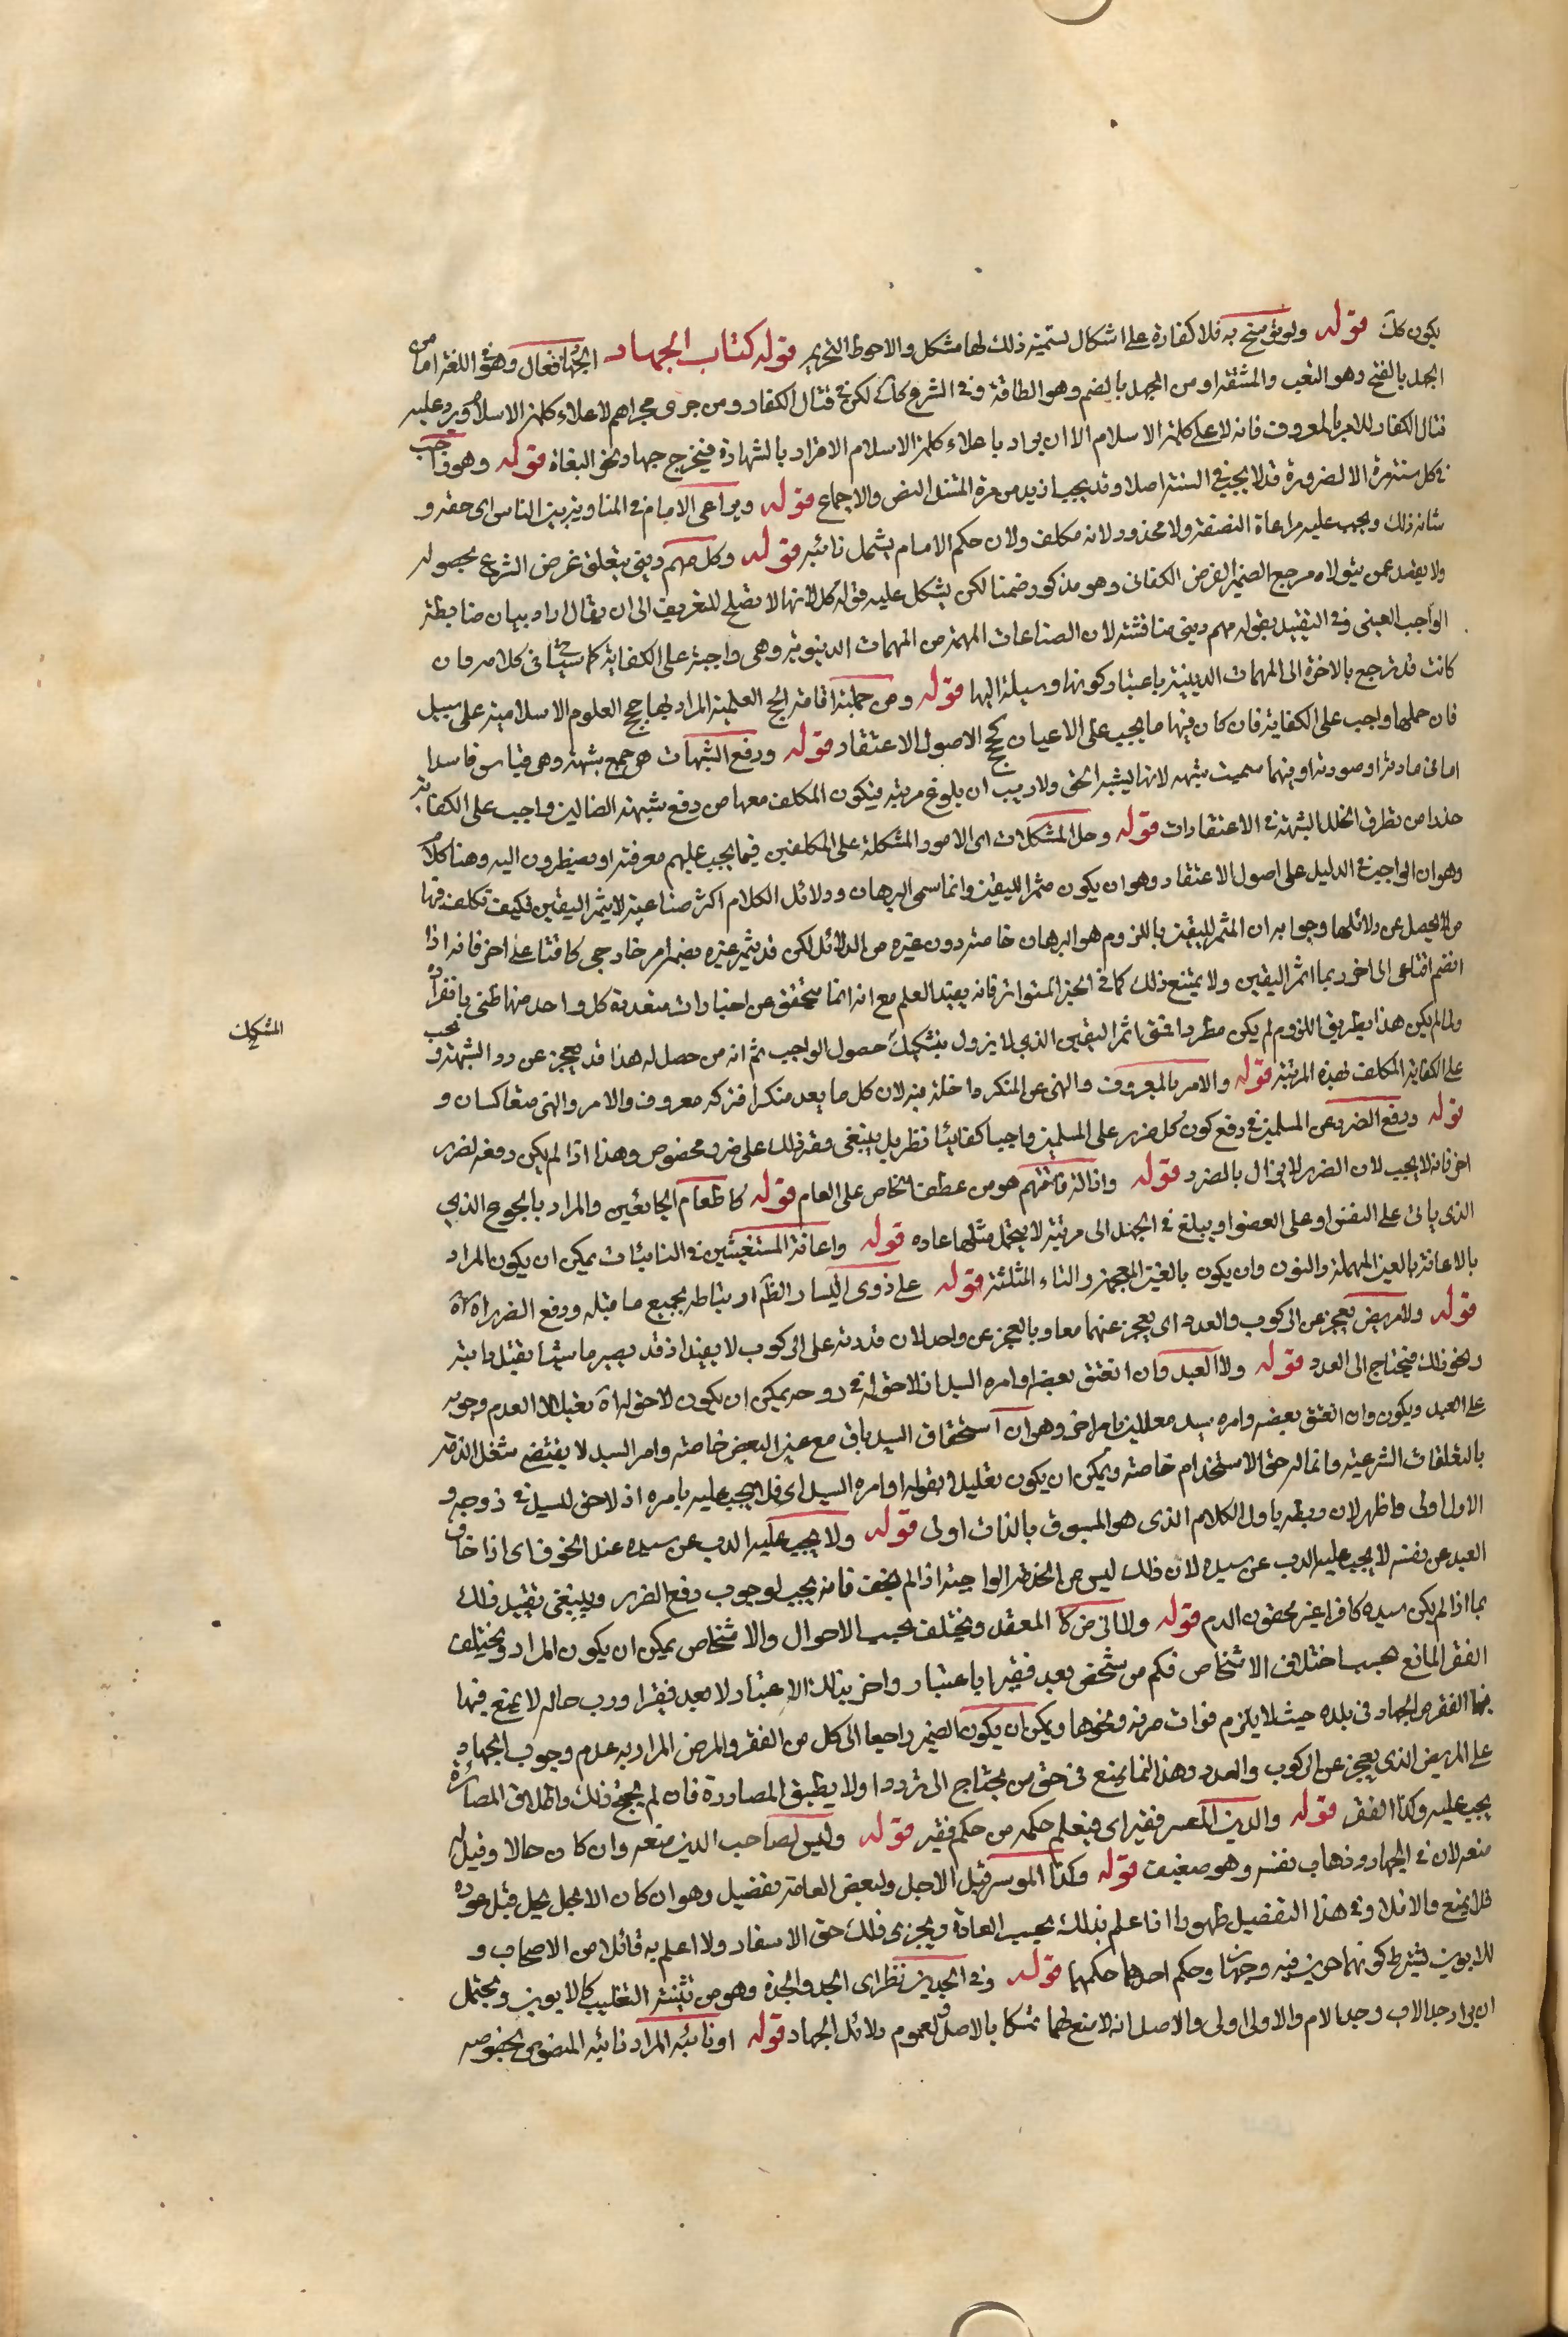 يكون كك قوله ولو فسخ به فلا كفارة على اشكال لستميته ذلك لها مشكل والاحوط التحريم قوله كتاب الجهاد الجهاد فعال وهو في اللغة اما من
الجهد بالفتح وهو التعب والمشقة او من الجهد بالضم وهو الطاقة وفي الشرع كك لكن في قتال الكفار ومن جرى مجراهم لاعلاء كلمة الاسلام ويرد عليه
قتال الكفار للامر بالمعروف فانه لاعلاء كلمة الاسلام الا ان يراد باعلاء كلمة الاسلام الاقرار بالشهادة فيخرج جهاد نحو البغاة قوله وهو واجب
في كل سنة مرة الا لضرورة قد لا يجب في السنة اصلا وقد يجب ازيد من مرة المستند النص والاجماع قوله ويراعى الامام في المناوبة بين الناس اي حقه و
شانه ذلك ويجب عليه مراعاة النصفة ولا محذور لانه مكلف ولان حكم الامام يشمل نائبه قوله وكل مهم ديني يتعلق غرض الشرع بحصوله
ولا يقصد عين من يتولاه مرجع الضمير الفرض الكفائي وهو مذكور ضمنا لكن يشكل عليه قوله كل لانها لا تصلح للتعريف الى ان يقال اراد بيان ضابطة
الواجب العيني وفي التقييد بقوله مهم ديني مناقشة لان الصناعات المهمة من المهمات الدنيوية وهي واجبة على الكفاية كما سيأتي في كلامه وان
كانت قد ترجع بالاخرة الى المهمات الدينية باعتبار كونها وسيلة اليها قوله ومن جملته اقامة الحجج العلمية المراد بها حجج العلوم الاسلامية على سبيل
فان حملها واجب على الكفاية فان كان فيها ما يجب على الاعيان كحجج الاصول الاعتقاد قوله ودفع الشبهات هي جمع شبهة وهي قياس فاسد
اما في مادته او صورته او فيهما سميت شبهه لانها يشبه الحق ولا ريب ان بلوغ مرتبة فيكون المكلف معها من دفع شبهة الضالين واجب على الكفاية
حذرا من تطرق الخلل الشبهة في الاعتقادات قوله وحل المشكلات اي الامور المشكلة على المكلفين فيما يجب عليهم معرفته او يضطرون اليه وهنا كلام
وهو ان الواجب في الدليل على اصول الاعتقاد وهو ان يكون مثمرا لليقين وانما سمي البرهان ودلائل الكلام اكثر صناعية لا يثمر اليقين فكيف تكلف فيها
من لا يحصل عن دلائلها وجوابه ان المثمر لليقين باللزوم هو البرهان خاصة دون غيره من الدلائل لكن قد يثمر غيره بضم امر خارجي كاقناعي اخر فانه اذا
انضم اقناعي الى اخر ربما اثمر اليقين ولا يمتنع ذلك كما في الخبر المتواتر فانه يفيد العلم مع انه انما يتحقق عن اخبارات متعددة كل واحد منها ظني بانفراده
ولما لم يكن هذا بطريق اللزوم لم يكن مطردا فمتى اثمر اليقين الذي لا يزول بتشكيك حصول الواجب ثم انه من حصل له هذا قد يعجز عن رد الشبهة ويجب
المشكل
على الكفاية المكلف لهذه المرتبة قوله والامر بالمعروف والنهي عن المنكر داخلة فيه لان كل ما يعد منكرا فتركه معروف والامر والنهي متعاكسان و
قوله ودفع الضرر عن المسلمين في دفع كون كل ضرر على المسلمين واجبا كفائيا نظر بل ينبغي وقف ذلك على ضرر مخصوص وهذا اذا لم يكن دفعه لضرر
اخر فانه لا يجب لان الضرر لا يزال بالضرر قوله وازالة فاقتهم هو من عطف الخاص على العام قوله كاطعام الجائعين والمراد بالجوع الذي
الذي ياتي على النفس او على العضو او يبلغ في الجهد الى مرتبة لا يتحمل مثلها عادة قوله واعانة المستغيثين في النائبات يمكن ان يكون المراد
بالاعانة بالعين المهملة والنون وان يكون بالغين المعجمة والثاء المثلثة قوله على ذوي اليسار الظ ارتباطه بجميع ما قبله ودفع الضرر اه
قوله ولا مريض يعجز عن الركوب والعدو اي يعجز عنهما معا وبالعجز عن واحد لان قدرته على الركوب لا يفيد اذ قد يصير ماشيا بقتل دابته
ونحو ذلك فيحتاج الى العدو قوله ولا العبد وان انعتق بعضه او امره السيد اذ لا حق له في روحه يمكن ان يكون لا حق له اه تعليلا لعدم وجوبه
على العبد ويكون وان انعتق بعضه وامره سيده معللين بامر اخر وهو ان استحقاق السيد باق مع عتق البعض خاصة وامر السيد لا يقتضي شغل الذمة
بالتعلقات الشرعية وانما له حق الاستخدام خاصة ويمكن ان يكون تعليلا لقوله او امره السيد اي فلا يجب عليه بامره اذ لا حق للسيد في زوجه و
الاول اولى واظهر لان ربطه باول الكلام الذي هو المسوق بالذات اولى قوله ولا يجب عليه الذب عن سيده عند الخوف اي اذا خاف
العبد عن نفسه لا يجب عليه الذب عن سيده لان ذلك ليس من الخدمة الواجبة اذا لم يخف فانه يجب لوجوب دفع الضرر وينبغي تقييد ذلك
بما اذا لم يكن سيده كافرا غير محقون الدم قوله ولا اني ض كا المعقد ويختلف بحسب الاحوال والاشخاص يمكن ان يكون المراد ويختلف
الفقر المانع بحسب اختلاف الاشخاص فكم من شخص يعد فقيرا باعتبار واخر بذلك الاعتبار لا يعد فقيرا ورب حاله لا يمنع فيها
فيها الفقر من الجهاد في بلده حيث لا يلزم فوات حرفة ونحوها ويمكن ان يكون الضمير راجعا الى كل من الفقر والمرض المراد به عدم وجوب الجهاد
على المريض الذي يعجز عن الركوب والعدو وهذا انما يمنع في حق من يحتاج الى تردد ولا يطيق المصادرة فان لم يحتج ذلك واطلاق المصادرة
يجب عليه وكذا الفقر قوله والدين المعسر فقير اي فيعلم حكمه من حكم فقير قوله وليس لصاحب الدين منعه وان كان حالا وقيل له
منعه لان في الجهاد ذهاب نفسه وهو ضعيف قوله وكذا الموسر قبل الاجل ولبعض العامة تفصيل وهو ان كان الاجل يحل قبل عوده
فله المنع والا فلا وفي هذا التفصيل ظهور اذا علم بذلك بحسب العادة ويجزي ذلك حق الاسفار ولا اعلم به قائلا من الاصحاب و
للابوين يشترط كونهما حرين فيه وجهان وحكم احدهما حكمهما قوله وفي الجدين نظر اي الجد والجدة وهو من تثنية التغليب كالابوين ويحتمل
ان يراد جد الاب وجد الام والاول اولى والاصل انه لا منع لهما تمسكا بالاصل ولعموم دلائل الجهاد قوله او نائبه المراد نائبه المنصوب بخصوصه